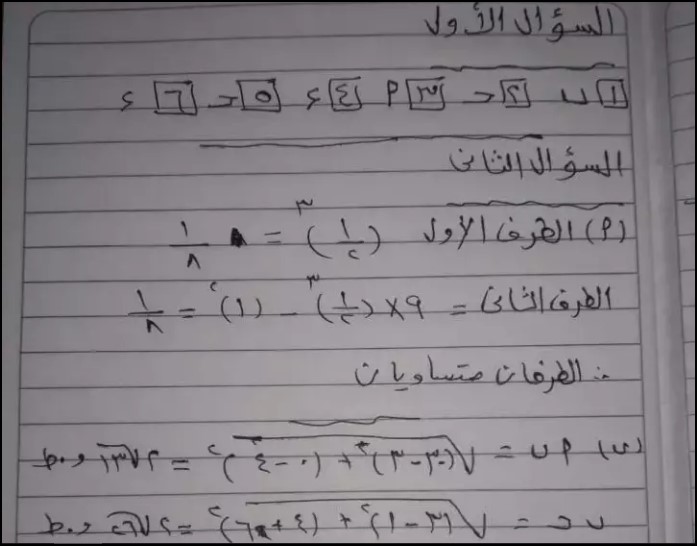 السؤال الأول
[١] ب [٢] ج [٣] م [٤] ء [٥] ج [٦] ء
السؤال الثانى
(م) الطرف الأول (١/٢)^٣ = ١/٨
الطرف الثانى = ٩ × (١/٢)^٣ − (١)^٢ = ١/٨
∴ الطرفان متساويان
(ب) م ب = √((-٣-٣)^٢ + (٠-٤)^٢) = ٢√١٣ و.ط
ب ج = √((٣-١)^٢ + (٤+٦)^٢) = ٢√٢٦ و.ط